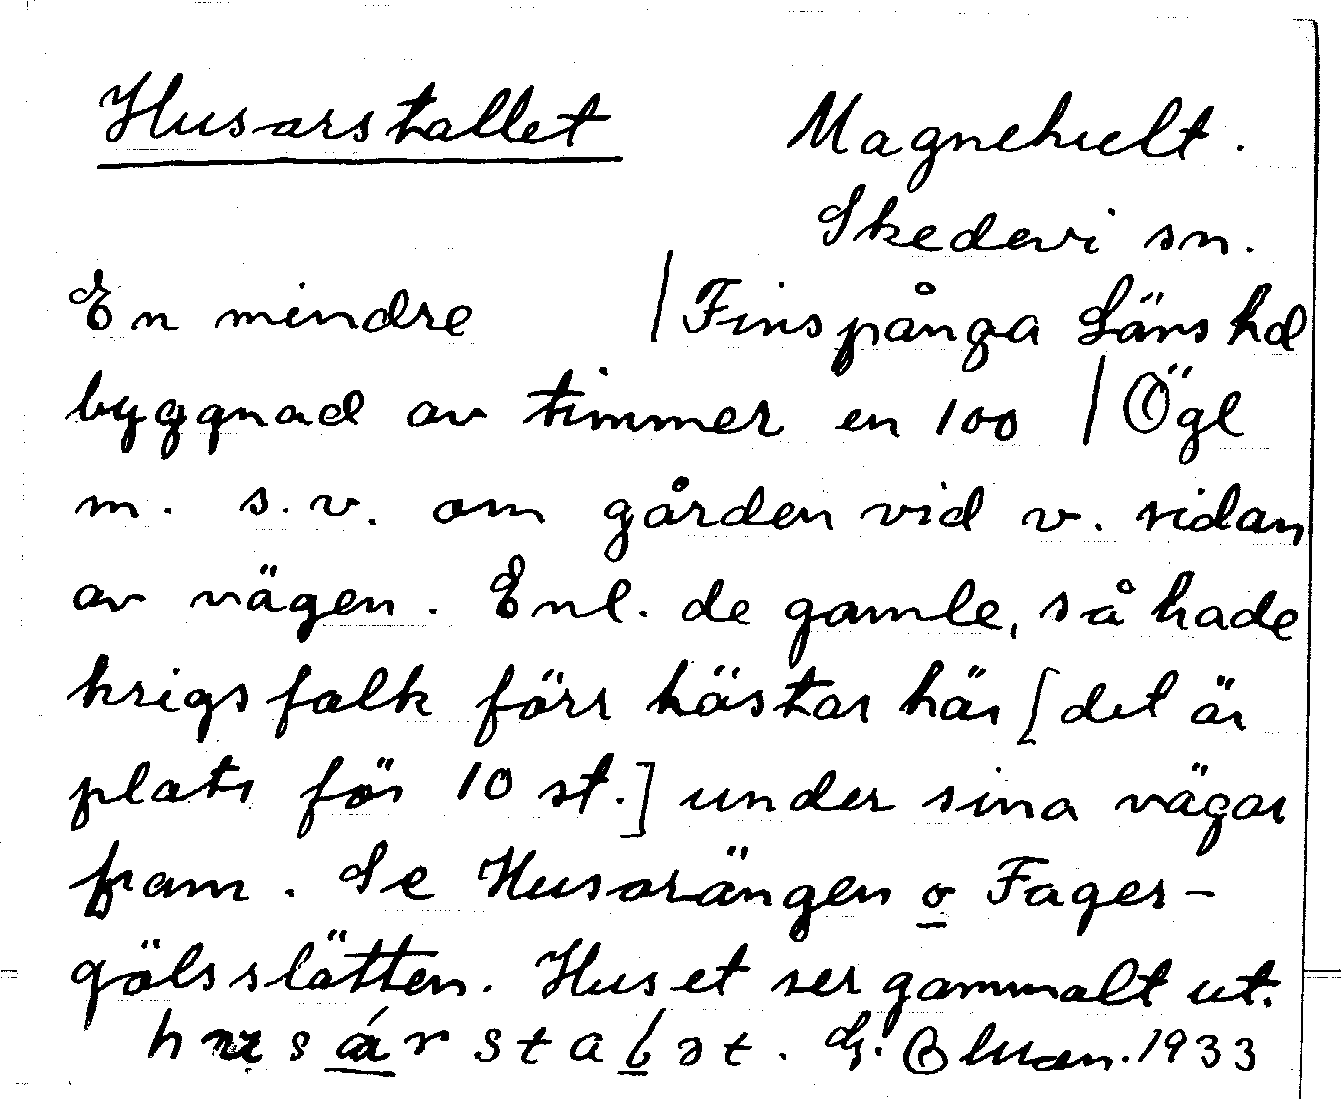 Husarstallet Magnehult.
Skedevi sn.
En mindre / Finspånga Läns hd
byggnad av timmer en 100 / Ögl
m. s.v. om gården vid v. sidan
av vägen. Enl. de gamle, så hade
krigsfolk förr hästar här [det är
plats för 10 st.] under sina vägar
fram. Se Husarängen o Fager-
gölsslätten. Huset ser gammalt ut.
husárstalət. G. 1933